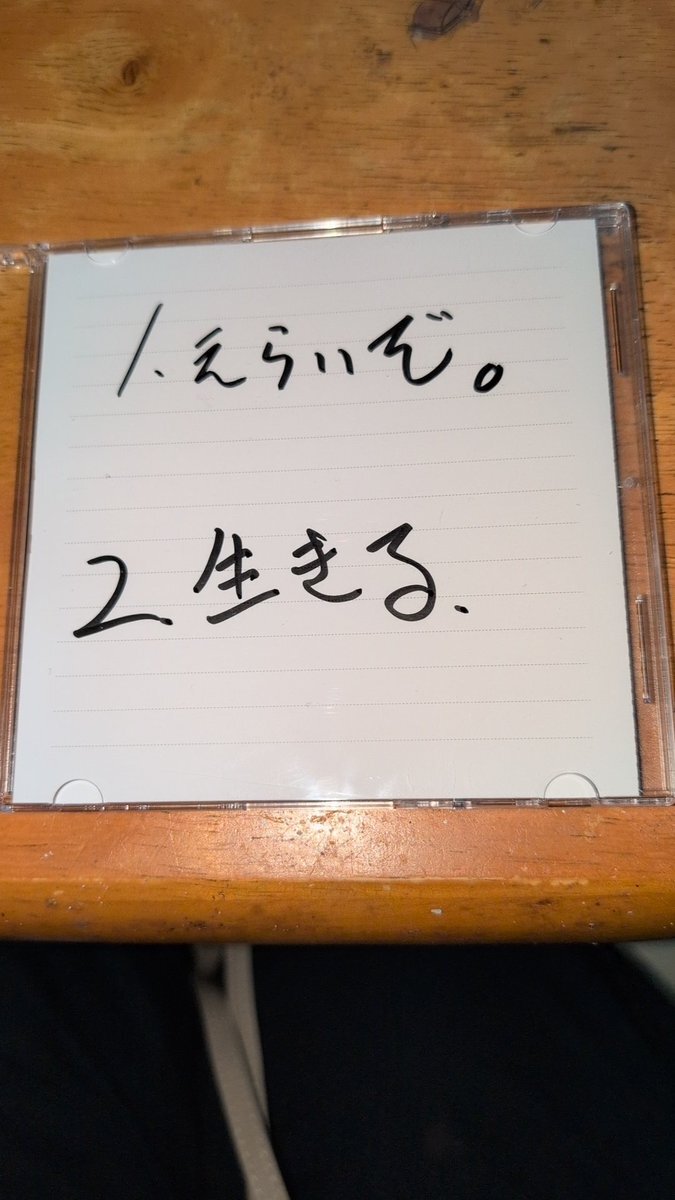 1. えらいぞ。
2. 生きる.